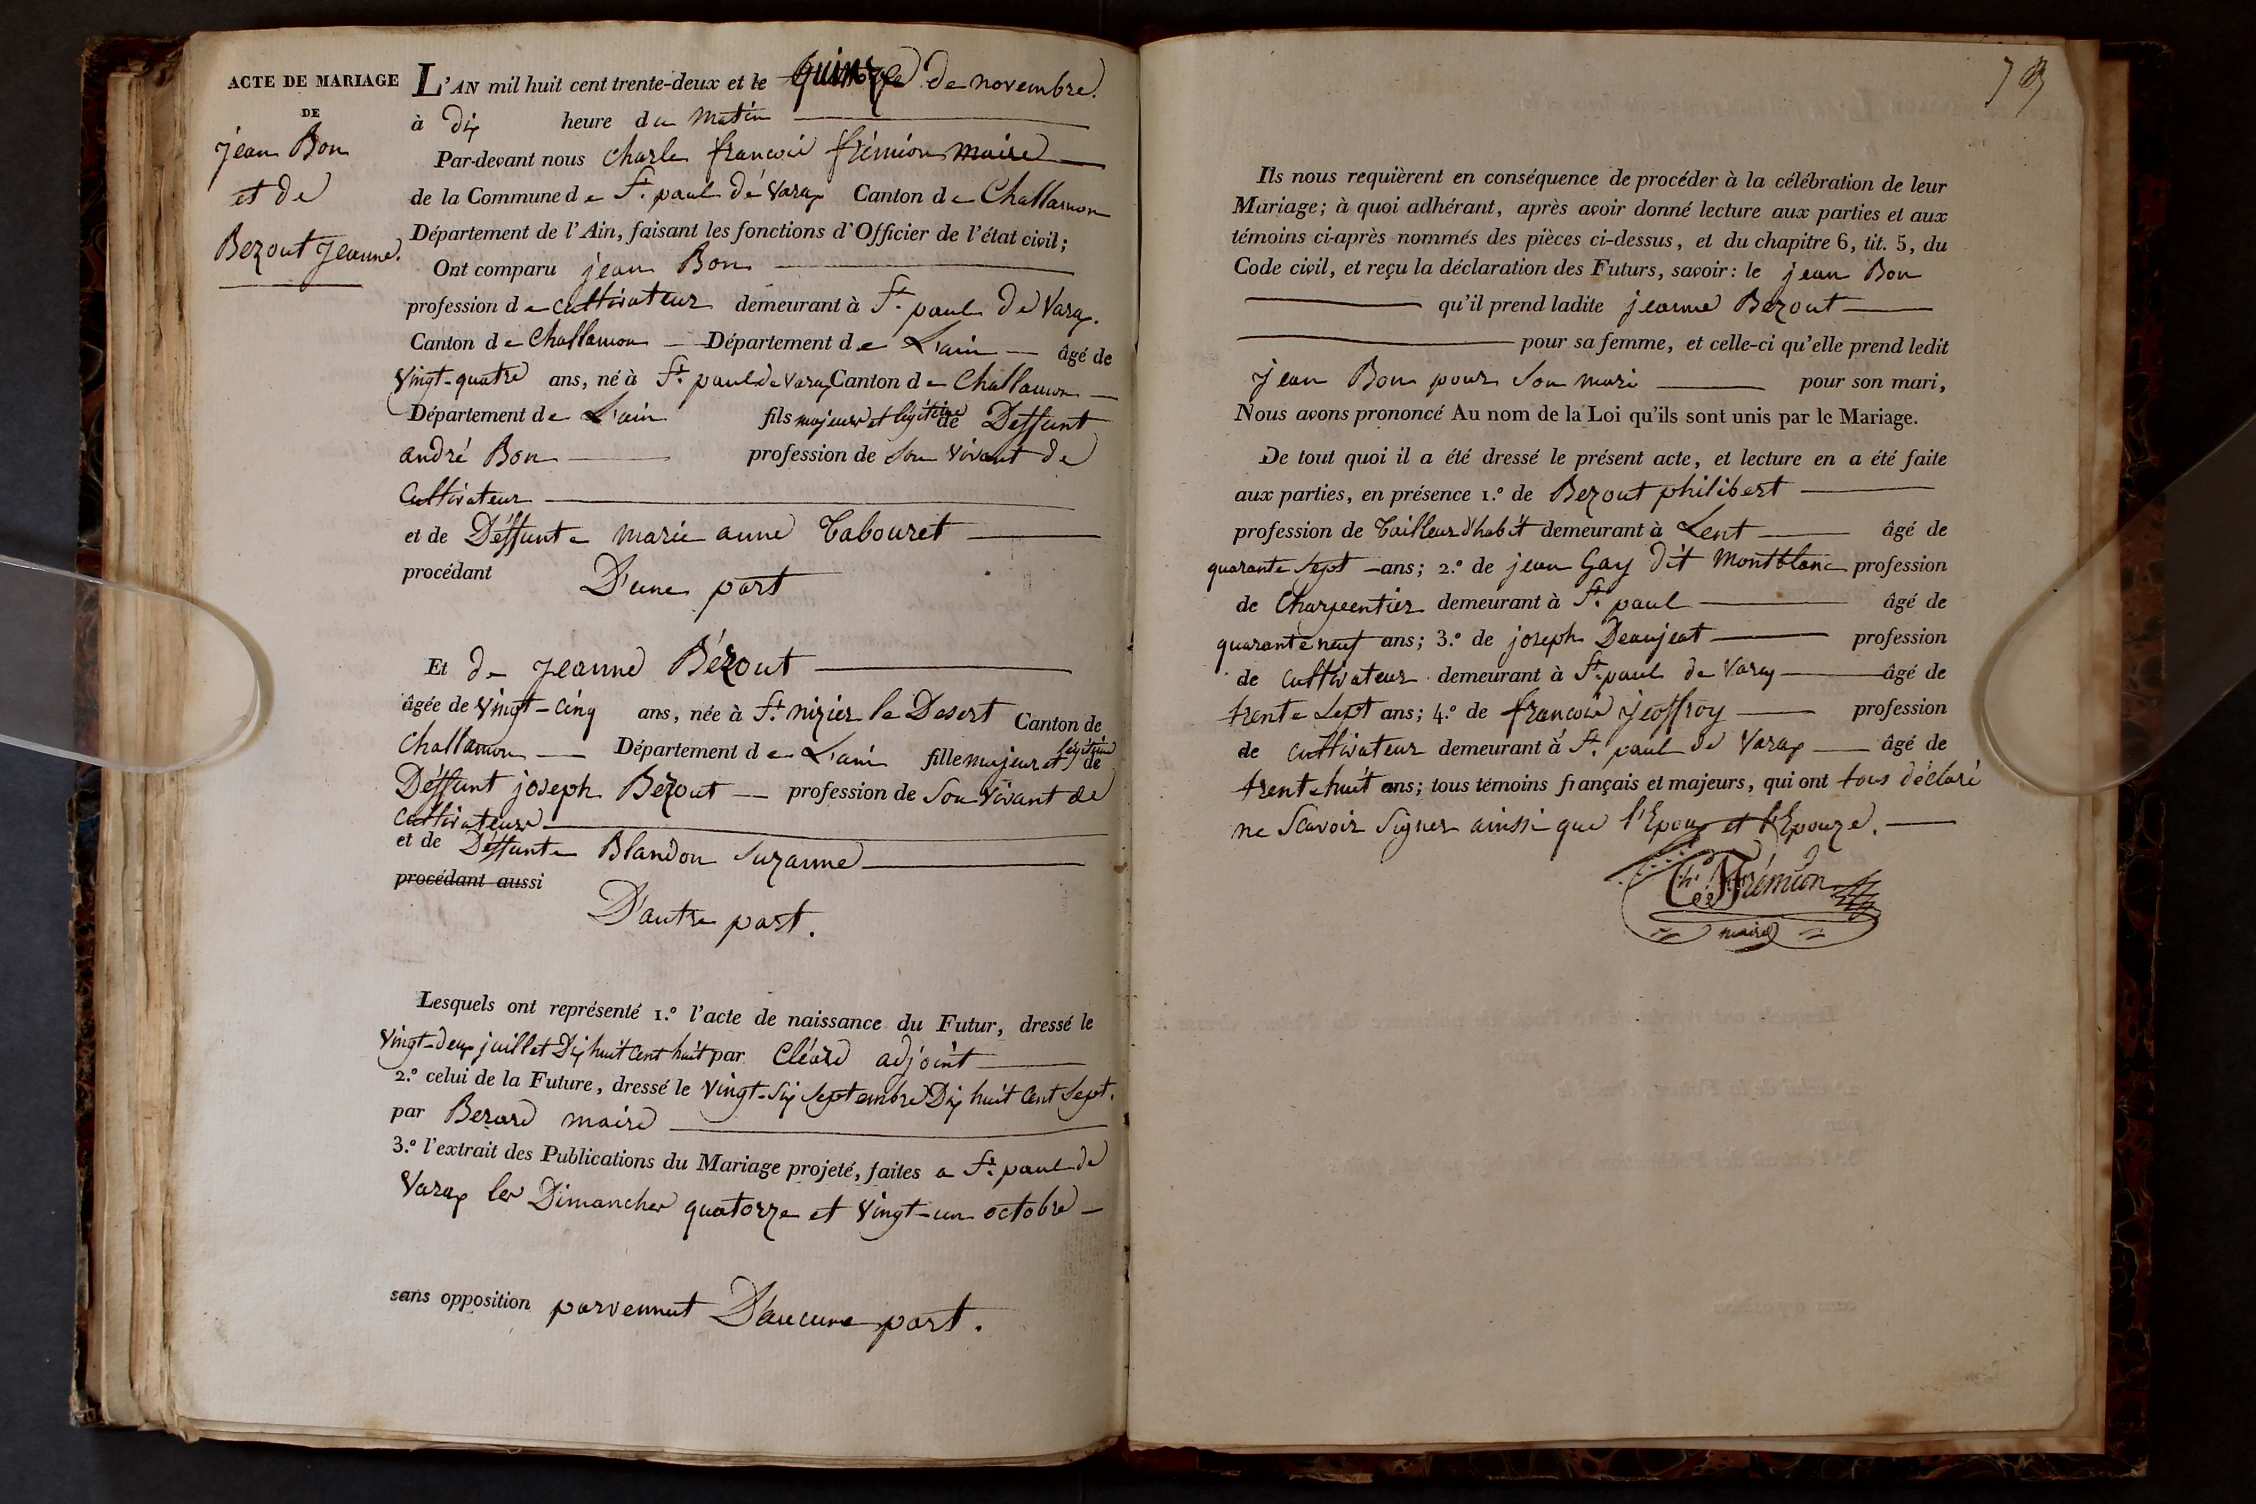 ACTE DE MARIAGE
DE
jean Bon
et de
Bezout Jeanne.
L'AN mil huit cent trente-deux et le quinze de novembre.
à dix heure du matin
Par-devant nous Charle françois frémion maire
de la Commune de St. paul de Varax Canton de Challamon
Département de l'Ain, faisant les fonctions d'Officier de l'état civil;
Ont comparu jean Bon
profession de cultivateur demeurant à St. paul de Varax.
Canton de Challamon Département de L'ain âgé de
Vingt-quatre ans, né à St. paul de Varax Canton de Challamon
Département de L'ain fils majeur et légitime de Deffunt
andré Bon profession de Son Vivant de
Cultivateur
et de Déffunte marie anne Tabouret
procédant
D'une part
Et de Jeanne Bézout
âgée de Vingt-Cinq ans, née à St. nizier le Desert Canton de
Challamon Département de L'ain fille majeur et légitime de
Déffunt joseph Bezout profession de Son Vivant de
Cultivateur
et de Déffunte Blandon Suzanne
procédant aussi
D'autre part.
Lesquels ont représenté 1.º l'acte de naissance du Futur, dressé le
Vingt-deux juillet Dix huit Cent huit par Cléard adjoint
2.º celui de la Future, dressé le Vingt-Six Septembre Dix huit Cent Sept.
par Berard maire
3.º l'extrait des Publications du Mariage projeté, faites a St. paul de
Varax les Dimanches quatorze et Vingt-un octobre
sans opposition parvennut D'aucune part.
Ils nous requièrent en conséquence de procéder à la célébration de leur
Mariage; à quoi adhérant, après avoir donné lecture aux parties et aux
témoins ci-après nommés des pièces ci-dessus, et du chapitre 6, tit. 5, du
Code civil, et reçu la déclaration des Futurs, savoir: le jean Bon
qu'il prend ladite jeanne Bezout
pour sa femme, et celle-ci qu'elle prend ledit
jean Bon pour Son mari pour son mari,
Nous avons prononcé Au nom de la Loi qu'ils sont unis par le Mariage.
De tout quoi il a été dressé le présent acte, et lecture en a été faite
aux parties, en présence 1.º de Bezout philibert
profession de Tailleur d'habit demeurant à Lent âgé de
quarante Sept ans; 2.º de jean Gay dit Montblanc profession
de Charpentier demeurant à St. paul âgé de
quarante neuf ans; 3.º de joseph Deaujeat profession
de Cultivateur demeurant à St. paul de Varax âgé de
trente Sept ans; 4.º de françois jeoffroy profession
de cultivateur demeurant à St. paul de Varax âgé de
trente huit ans; tous témoins français et majeurs, qui ont tous déclaré
ne Scavoir Signer ainssi que l'Epoux et l'Epouze.
Ch. Frémion
maire